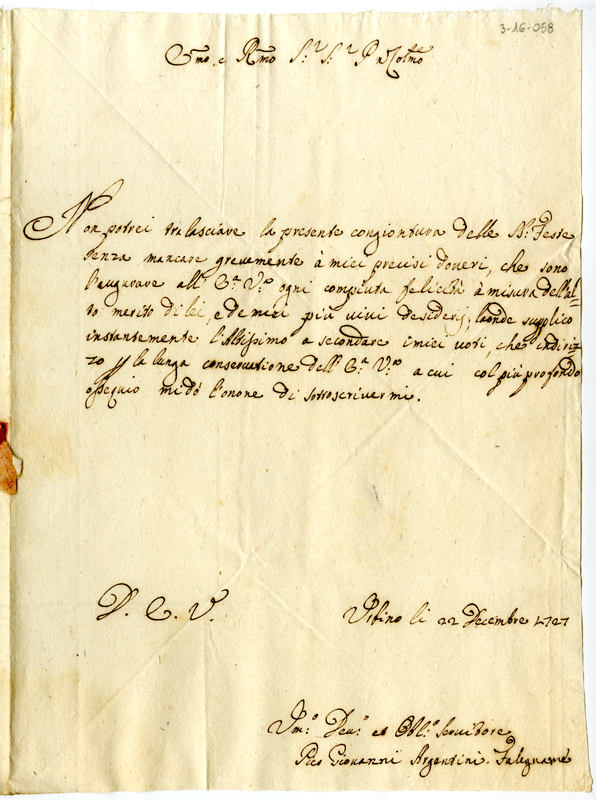 3-16-058
Emo, e Rmo Sr. Sr. P. Colmo
Non potrei tralasciare la presente congiontura delle Ss.e Feste
senza mancare grevemente à miei precisi doveri, che sono
l'augurare all' E.a V.a ogni compiuta felicità à misura dell'al=
to merito di lei, e de miei più vivi desiderij; laonde supplico
instantemente l'Altissimo a secondare i miei voti, che indiriz=
zo p la lunga conservatione dell' E.a V.a a cui col più profondo
ossequio mi dò l'onore di sottoscrivermi.
D. E. V.
Urbino li 22 Decembre 1727
Um.o Dev.o et Obbl.o Servitore
Giovanni Argentini. Falegname